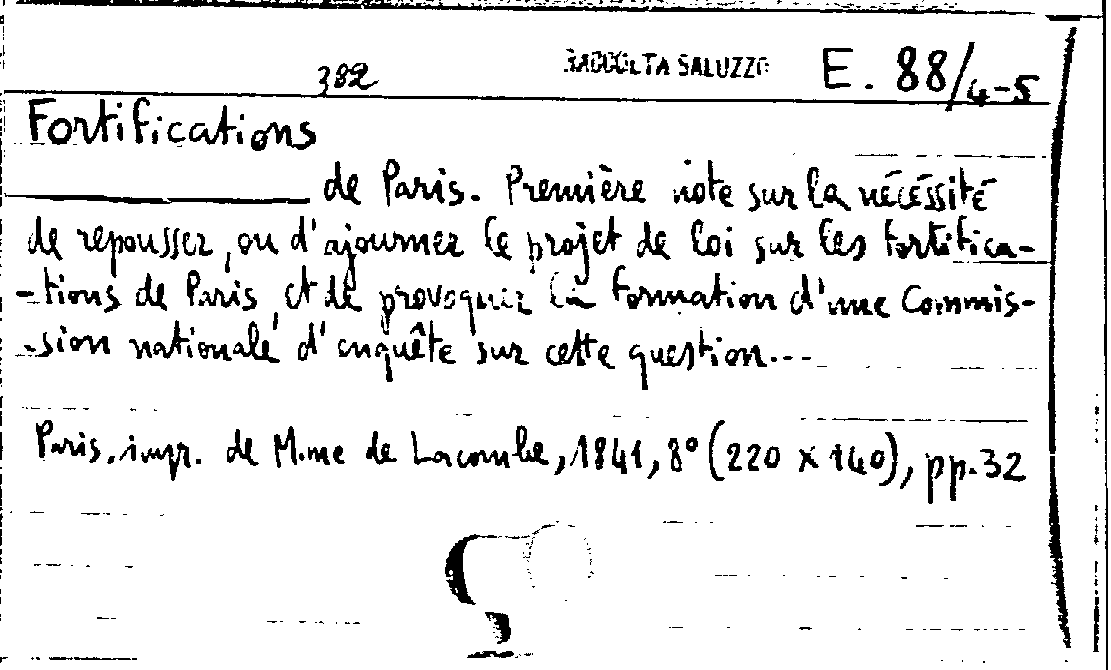 382 RACCOLTA SALUZZO E. 88/4-5
Fortifications
de Paris. Première note sur la nécéssité
de repousser, ou d'ajourner le projet de loi sur les fortifica-
-tions de Paris, et de provoquer la formation d'une Commis-
-sion nationale d'enquête sur cette question...
Paris, impr. de M.me de Lacombe, 1841, 8° (220 x 140), pp. 32